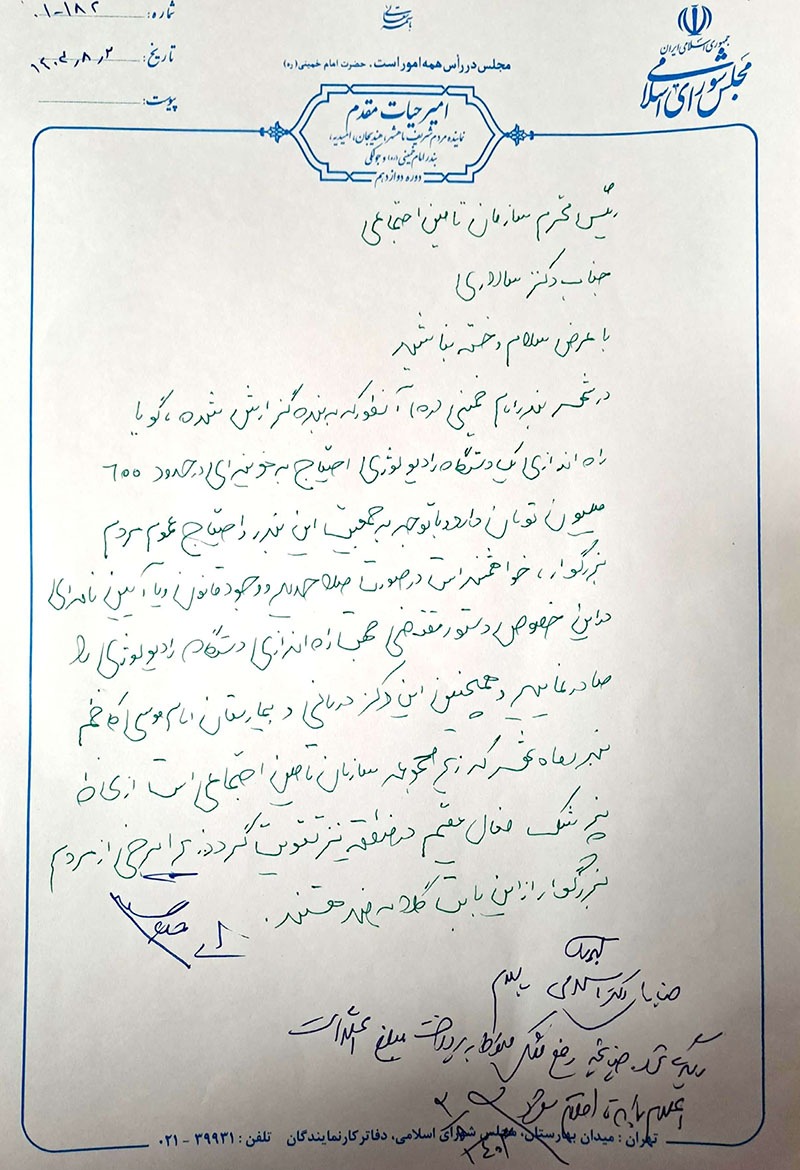 بسمه تعالی
شماره: ۰۱-۱۸۲
تاریخ: ۱۴۰۳٫۸٫۲
پیوست:
جمهوری اسلامی ایران
مجلس شورای اسلامی
مجلس در رأس همه امور است. حضرت امام خمینی (ره)
امیر حیات مقدم
نماینده مردم شریف ماهشهر، هندیجان، امیدیه،
بندر امام خمینی (ره) و جولکی
دوره دوازدهم
رئیس محترم سازمان تامین اجتماعی
جناب دکتر سالاری
با عرض سلام و خسته نباشید
در شهر بندر امام خمینی (ره) آنطور که به بنده گزارش شده، گویا
راه اندازی یک دستگاه رادیولوژی احتیاج به هزینه ای در حدود ۶۰۰
میلیون تومان دارد و با توجه به جمعیت این بندر و احتیاج عموم مردم
بزرگوار، خواهشمند است در صورت صلاحدید و وجود قانون و یا آیین نامه ای
در این خصوص دستور مقتضی جهت راه اندازی دستگاه رادیولوژی را
صادر نمایید و همچنین این مرکز درمانی و بیمارستان امام موسی کاظم
بندر ماهشهر که زیر مجموعه سازمان تامین اجتماعی است از لحاظ
پزشک فعال مقیم در منطقه نیز تقویت گردد زیرا برخی از مردم
بزرگوار از این بابت گلایه مند هستند.
جناب دکتر اسلامی سلام
پیگیری شد. چنانچه رفع مشکل منوط به پرداخت مبلغ است
اعلام تا اقدام شود
تهران: میدان بهارستان، مجلس شورای اسلامی، دفاتر کار نمایندگان تلفن: ۳۹۹۳۱ - ۰۲۱